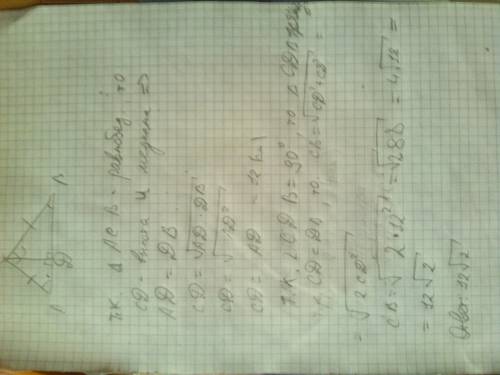 A
B
D
т.к. Δ ACB - равнобед, то
CD - высота и медиана =>
AD = DB
CD = √AD·DB
CD = √D²
CD = AD = 12
т.к. ∠CDB = 90°, то Δ CDB
CD = DB, то CB = √CD²+CD² =
= √2CD²
CB = √2·12² = √288 = 4√18 =
= 12√2
Ответ: 12√2